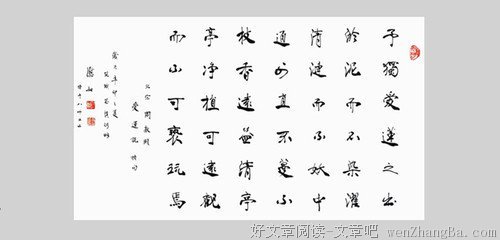 予獨愛蓮之出
於泥而不染濯
清漣而不妖中
通外直不蔓不
枝香遠益清亭
亭净植可遠觀
而不可褻玩焉
北宋周敦頤
愛蓮說 摘句
好文章阅读-文章吧 wenZhangBa.com